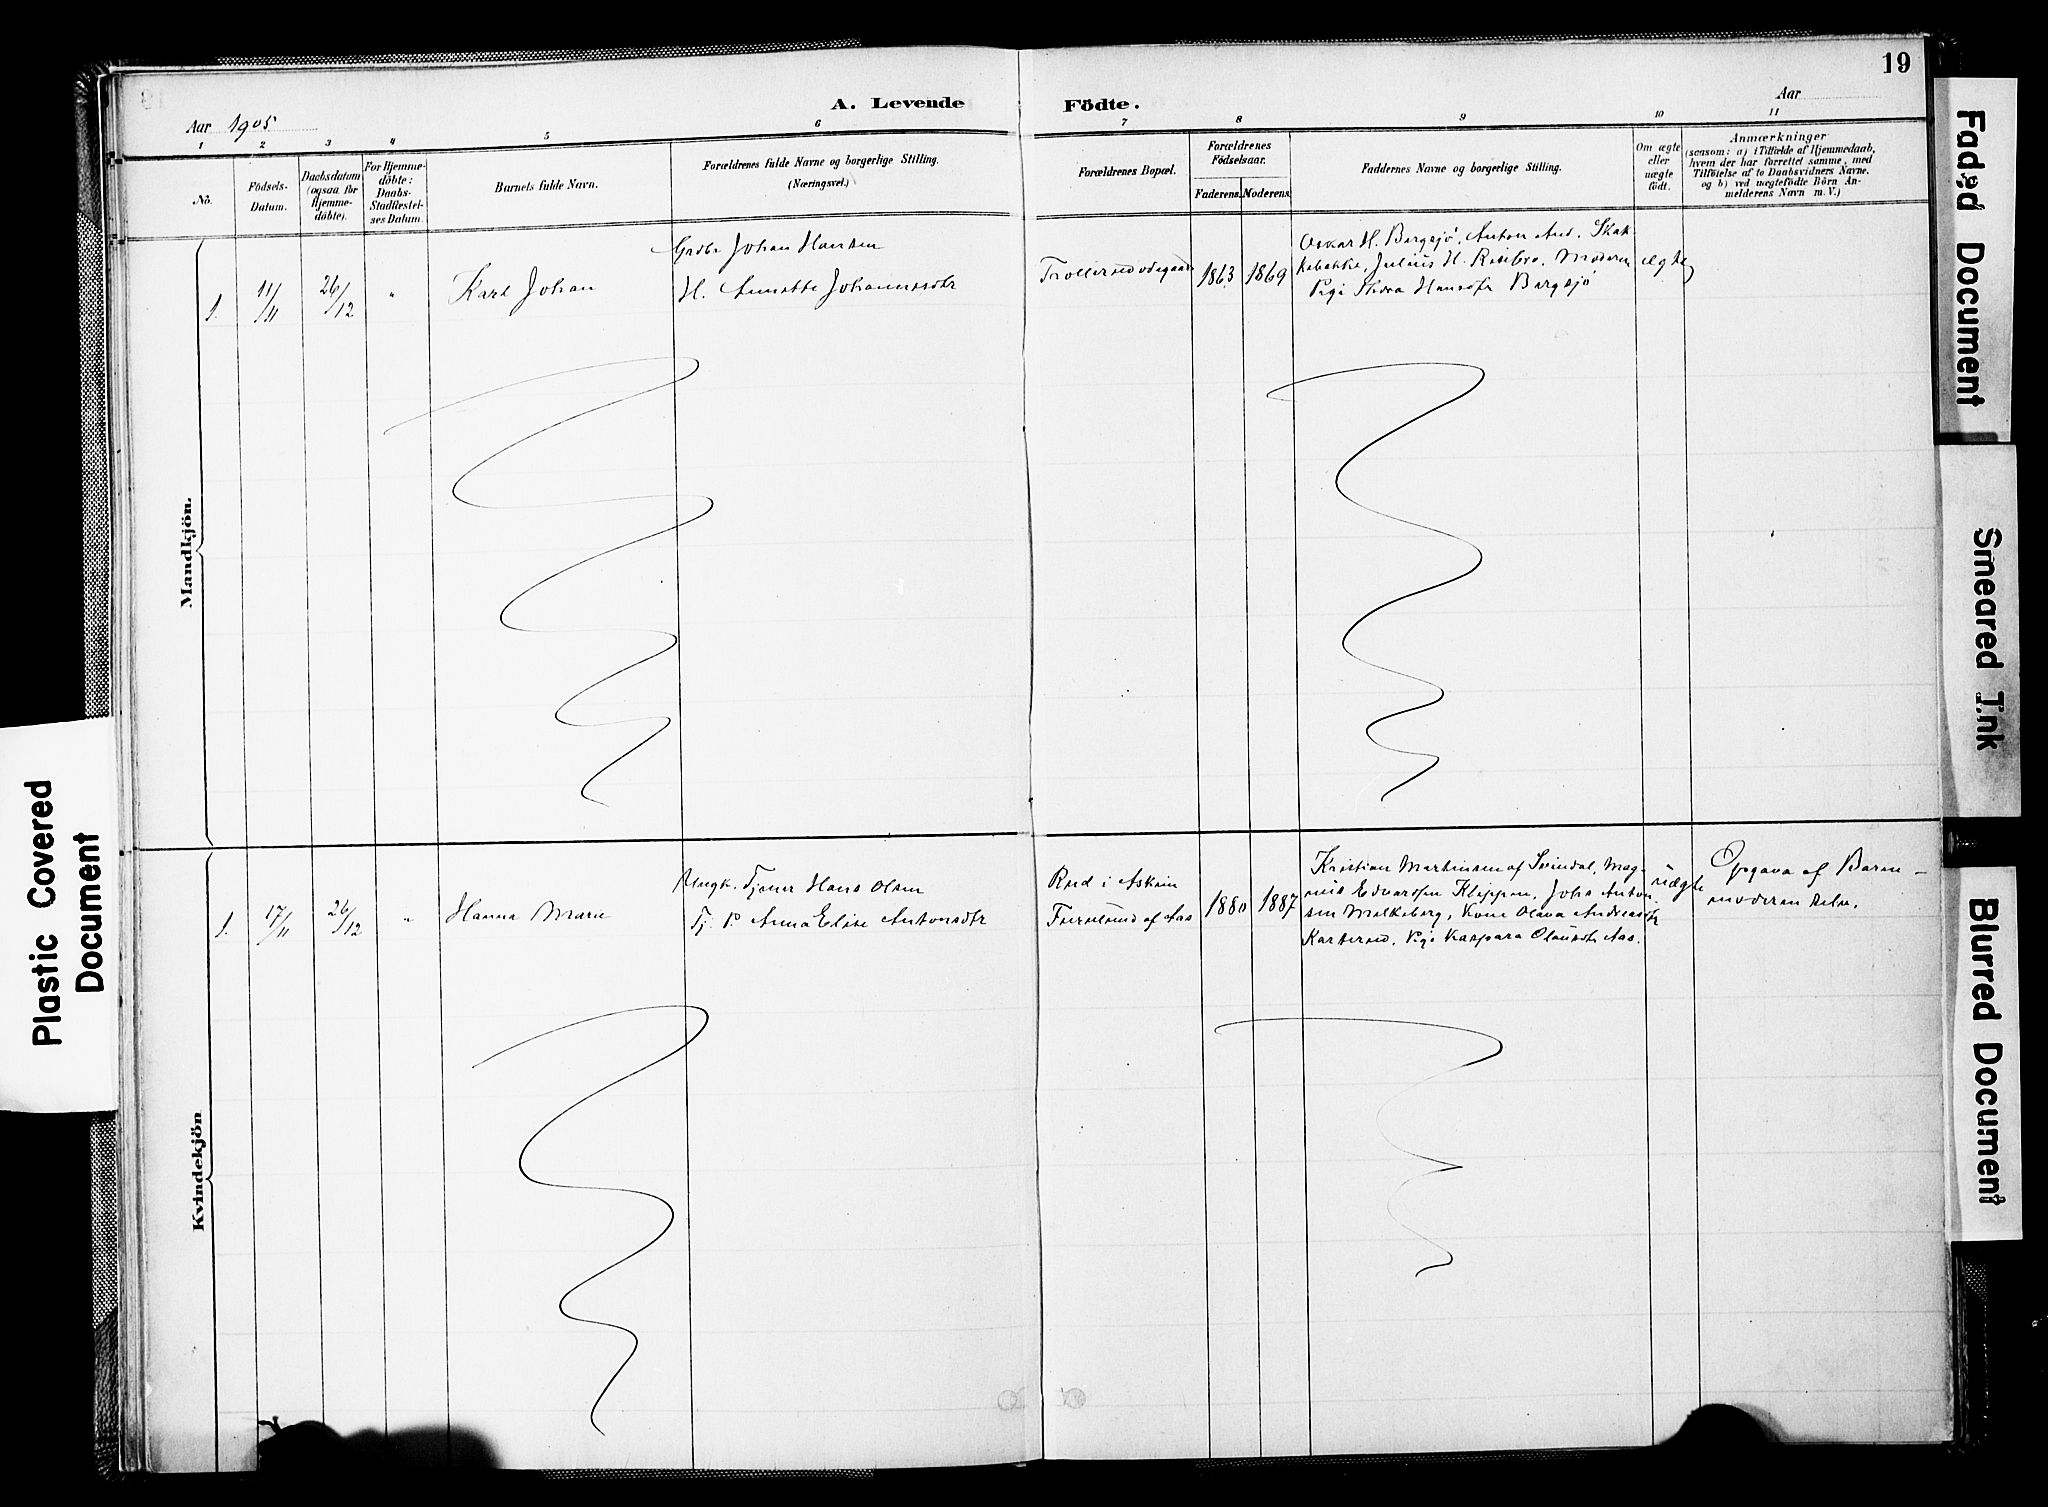 19
A. Levende Födte.
Aar 1905
Aar
1 2 3 4 5 6 7 8 9 10 11
No.
Födsels-
Datum.
Daabsdatum
(ogsaa for
Hjemme-
döbte).
For Hjemme-
döbte:
Daabs-
Stadfestel-
ses Datum.
Barnets fulde Navn.
Forældrenes fulde Navne og borgerlige Stilling.
(Næringsvei.)
Forældrenes Bopæl.
Forældrenes
Födselsaar.
Faderens. Moderens.
Faddernes Navne og borgerlige Stilling.
Om ægte
eller
uægte
födt.
Anmærkninger
(saasom: a) i Tilfælde af Hjemmedaab,
hvem der har forrettet samme, med
Tilföielse af to Daabsvidners Navne,
og b) ved uægtefödte Börn An-
melderens Navn m. V.)
Mandkjön.
1. 11/11 26/12 " Karl Johan
Gadbr Johan Hansen
H. Annette Johannesdtr
Trollerudødegaard 1863 1869
Oskar H. Bergsjö, Anton And. Skak-
kebakke, Julius H. Risebro, Moderen
Pige Thora Hansdtr Bergsjö
ægte
Kvindekjön
1. 17/11 26/12 " Hanna Marie
Ungk. Tjener Hans Olsen
Tj. P. Anna Elise Antonsdtr
Rud i Askim
Furulund af Aas
1880 1887
Kristian Martinsen af Svindal, Mag-
nus Edvardsen Kleppen, Johs Anton-
sen Molkeberg, Kone Olava Andreasdtr
Karterud, Pige Kaspara Olausdtr Aas.
uægte
Opgave af Barne-
moderen selv.
Plastic Covered
Document
Faded Document
Smeared Ink
Blurred Document